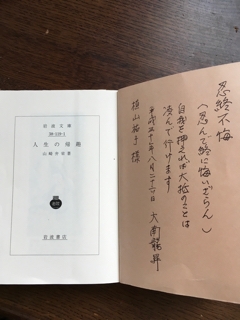 岩波文庫
人生の帰趣
山崎弁栄著
岩波書店
忍終不悔
(忍んで終に悔いざらん)
自我を押えれば大抵のことは
んで行けます
平成三十年八月二十日 大南龍昇
横山祐子様